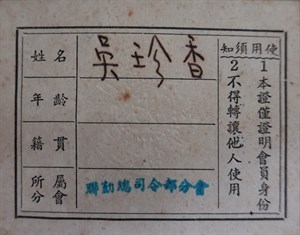 使用須知
1 本證僅證明會員身份
2 不得轉讓他人使用
姓名 吳珍香
年齡
籍貫
所屬分會 聯勤總司令部分會